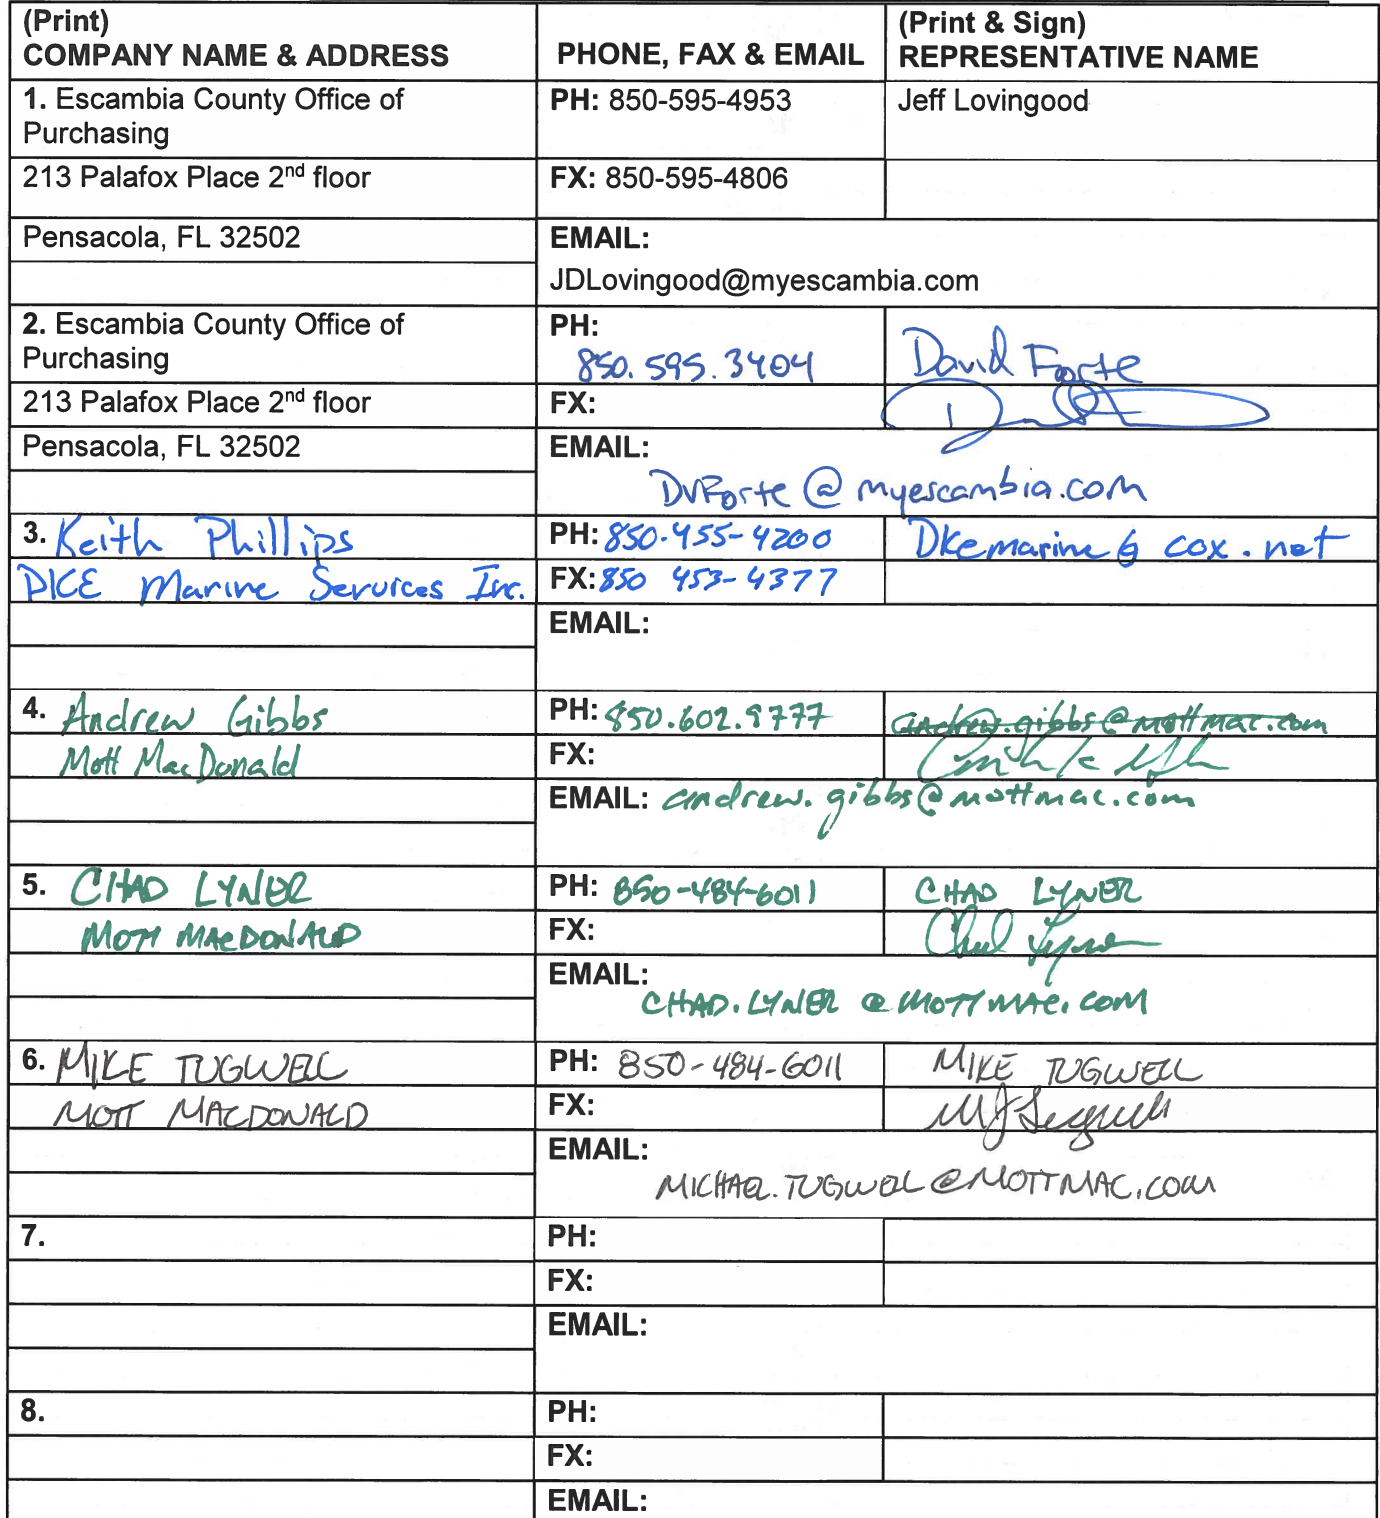 (Print)
COMPANY NAME & ADDRESS
PHONE, FAX & EMAIL
(Print & Sign)
REPRESENTATIVE NAME
1. Escambia County Office of
Purchasing
PH: 850-595-4953
Jeff Lovingood
213 Palafox Place 2nd floor
FX: 850-595-4806
Pensacola, FL 32502
EMAIL:
JDLovingood@myescambia.com
2. Escambia County Office of
Purchasing
PH:
850.595.3404
David Forte
213 Palafox Place 2nd floor
FX:
Pensacola, FL 32502
EMAIL:
DVForte@myescambia.com
3. Keith Phillips
PH: 850-455-4200
DKemarine@cox.net
DKE Marine Services Inc.
FX: 850 453-4377
EMAIL:
4. Andrew Gibbs
PH: 850.602.9777
andrew.gibbs@mottmac.com
Mott MacDonald
FX:
EMAIL: andrew.gibbs@mottmac.com
5. CHAD LYNER
PH: 850-484-6011
CHAD LYNER
MOTT MACDONALD
FX:
Chad Lyner
EMAIL:
CHAD.LYNER@MOTTMAC.COM
6. MIKE TUGWELL
PH: 850-484-6011
MIKE TUGWELL
MOTT MACDONALD
FX:
MJ Tugwell
EMAIL:
MICHAEL.TUGWELL@MOTTMAC.COM
7.
PH:
FX:
EMAIL:
8.
PH:
FX:
EMAIL: